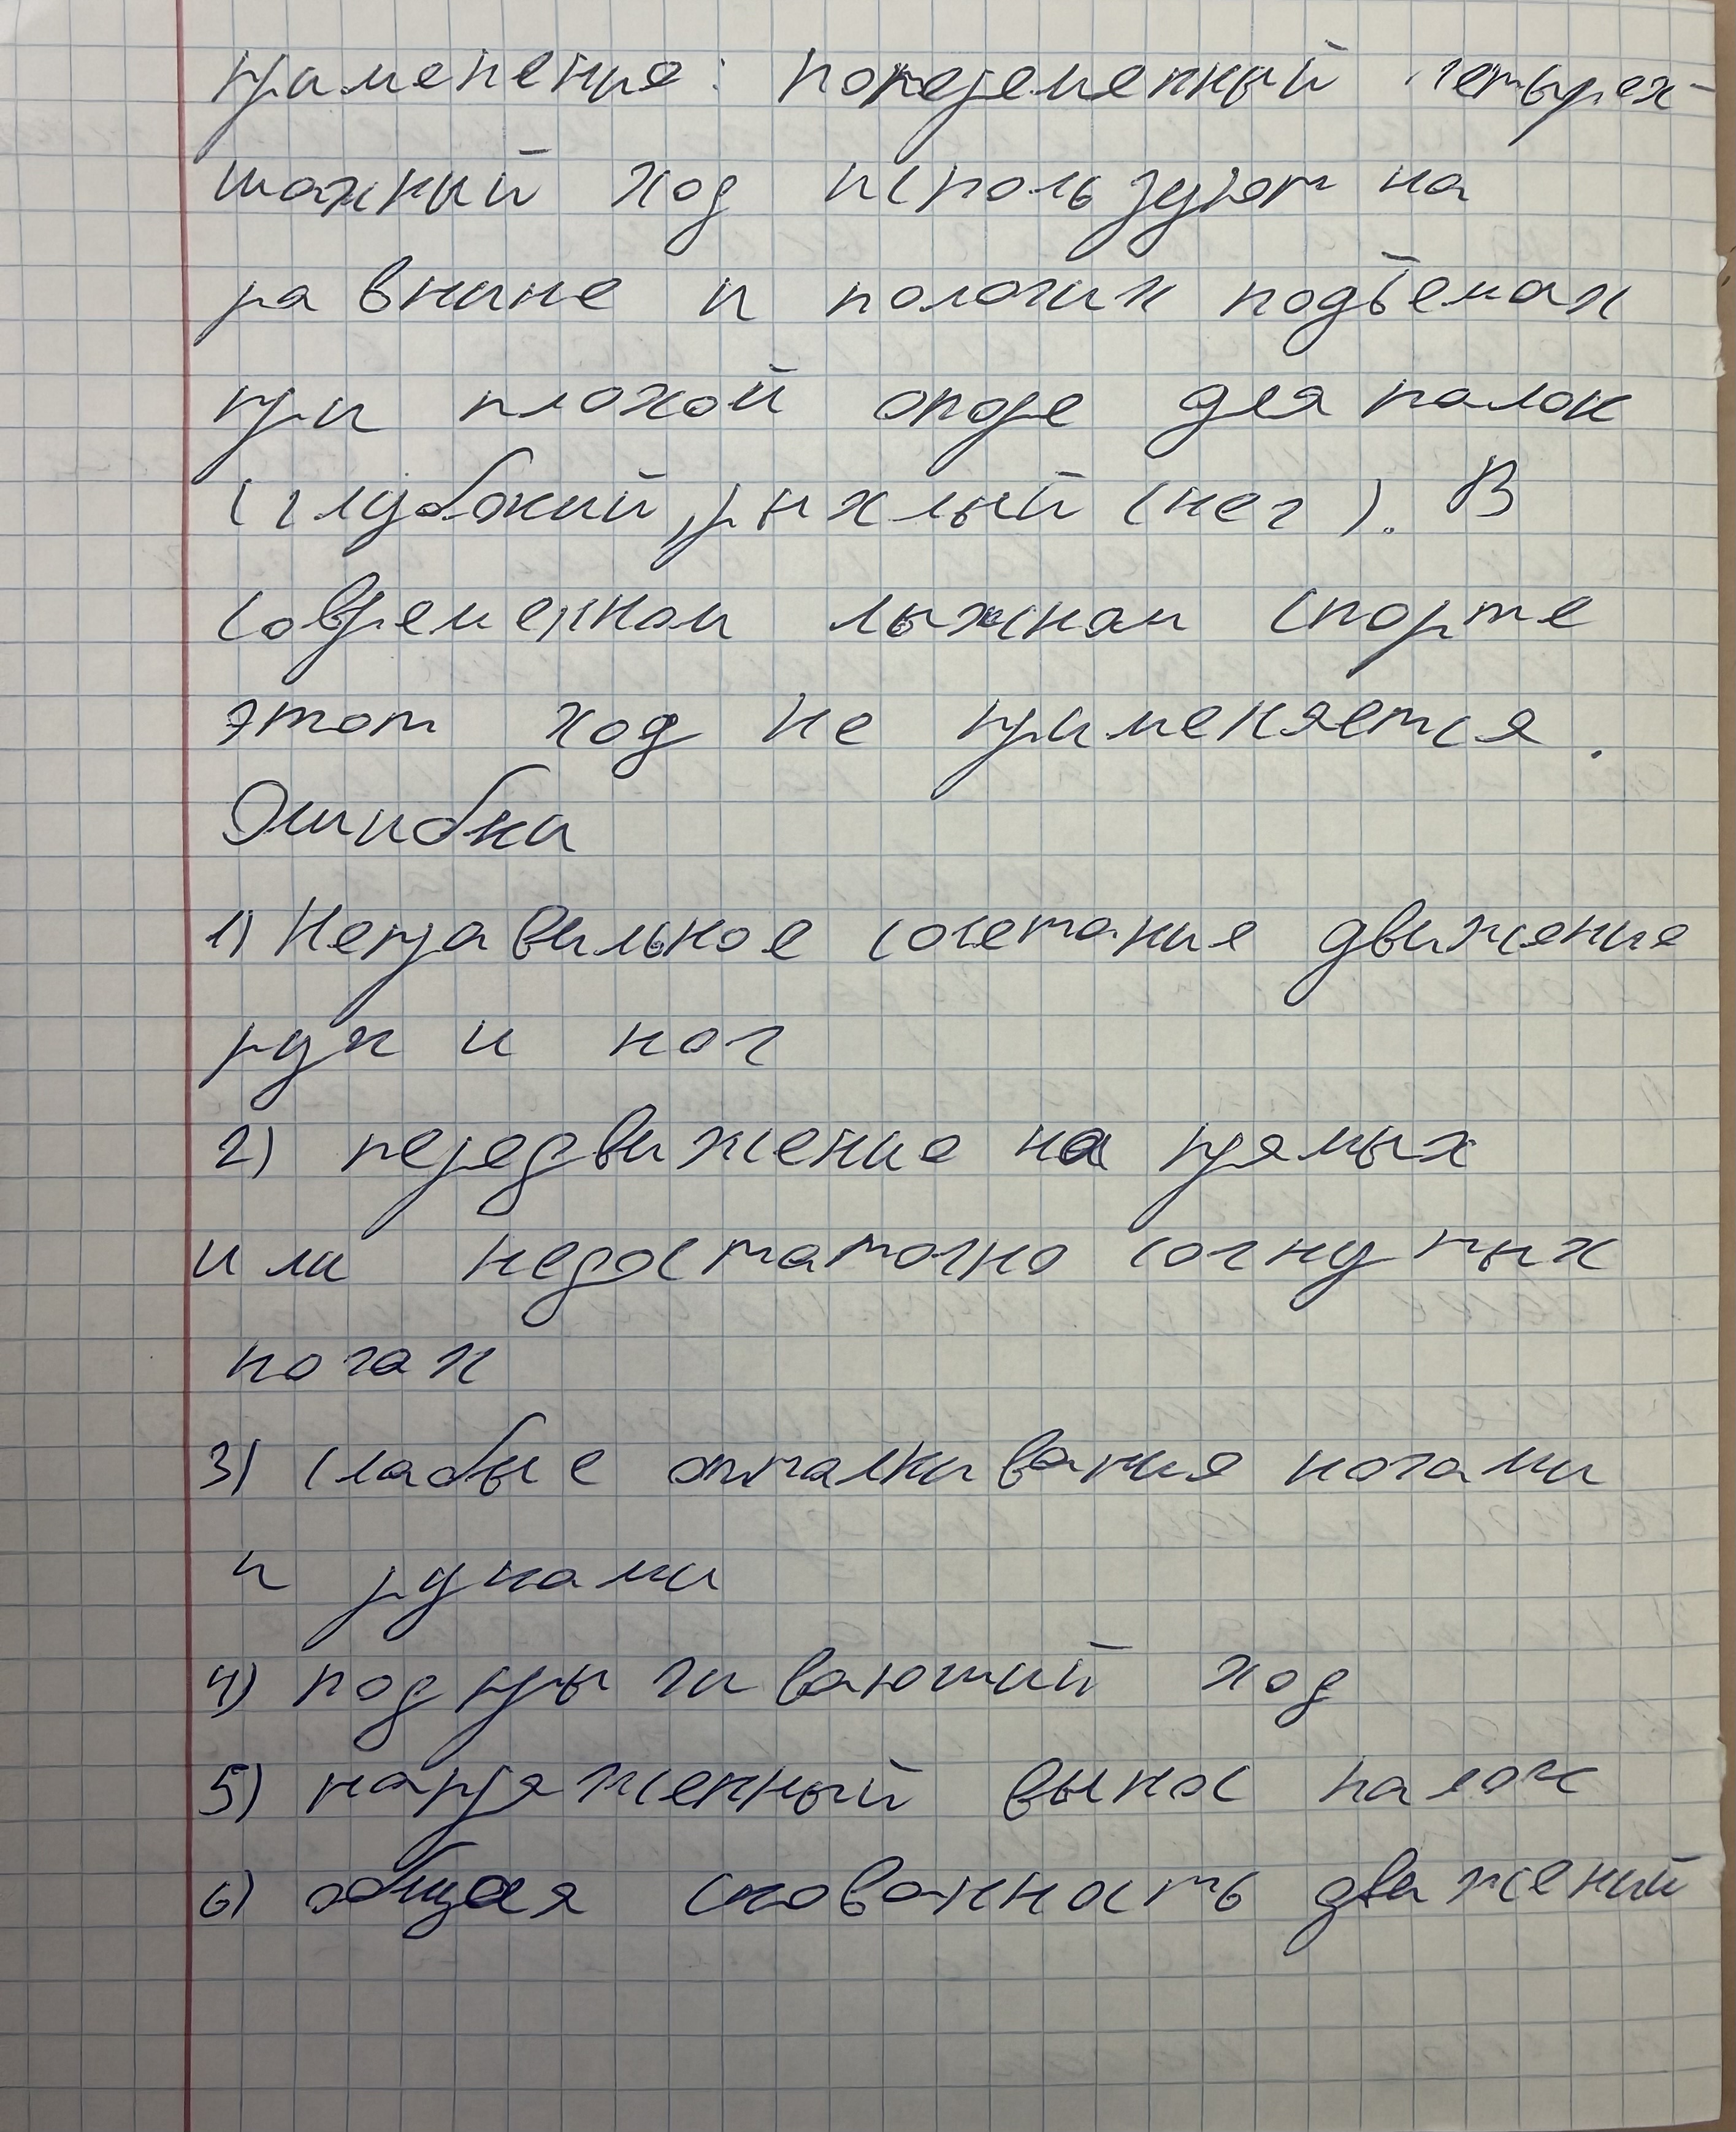 применение: попеременный четырех-
шажный ход используют на
равнине и пологих подъёмах
при плохой опоре для палок
(глубокий, рыхлый снег). В
современном лыжном спорте
этот ход не применяется.
Ошибки
1) Неправильное сочетание движение
рук и ног
2) передвижение на прямых
или недостаточно согнутых
ногах
3) слабые отталкивания ногами
и руками
4) подпрыгивающий ход
5) напряженный вынос палок
6) общая скованность движений